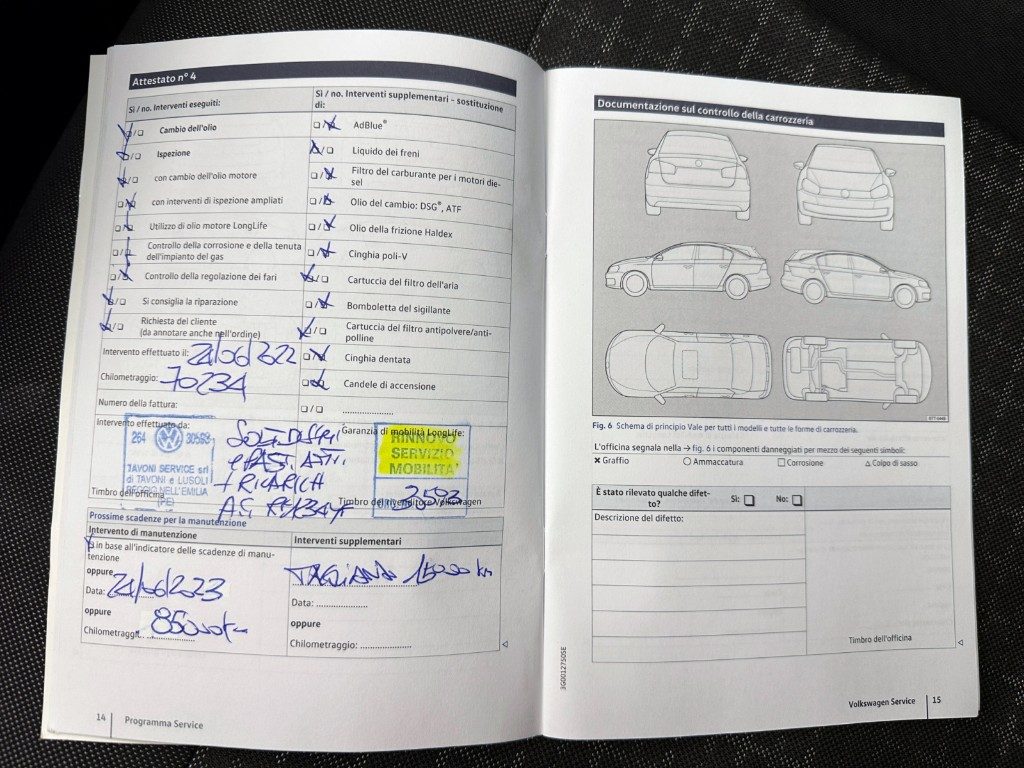 Attestato n° 4
Sì / no. Interventi eseguiti:
Cambio dell'olio
Ispezione
con cambio dell'olio motore
con interventi di ispezione ampliati
Utilizzo di olio motore LongLife
Controllo della corrosione e della tenuta
dell'impianto del gas
Controllo della regolazione dei fari
Si consiglia la riparazione
Richiesta del cliente
(da annotare anche nell'ordine)
Sì / no. Interventi supplementari – sostituzione
di:
AdBlue®
Liquido dei freni
Filtro del carburante per i motori die-
sel
Olio del cambio: DSG®, ATF
Olio della frizione Haldex
Cinghia poli-V
Cartuccia del filtro dell'aria
Bomboletta del sigillante
Cartuccia del filtro antipolvere/anti-
polline
Cinghia dentata
Candele di accensione
Intervento effettuato il: 21/06/2022
Chilometraggio: 70234
Numero della fattura:
Intervento effettuato da:
264 30593
TAVONI SERVICE srl
di TAVONI e LUSOLI
REGGIO NELL'EMILIA
(RE)
Timbro dell'officina
+ RICARICA
Garanzia di mobilità LongLife:
RINNOVO
SERVIZIO
MOBILITA'
Timbro del rivenditore Volkswagen
Prossime scadenze per la manutenzione
Intervento di manutenzione
in base all'indicatore delle scadenze di manu-
tenzione
oppure
Data: 21/06/2023
oppure
Chilometraggio: 85000 km
Interventi supplementari
TAGLIANDO 15000 km
Data: ....................
oppure
Chilometraggio: ....................
14 Programma Service
Documentazione sul controllo della carrozzeria
BTT-0449
Fig. 6 Schema di principio Vale per tutti i modelli e tutte le forme di carrozzeria.
L'officina segnala nella → fig. 6 i componenti danneggiati per mezzo dei seguenti simboli:
✕ Graffio ○ Ammaccatura □ Corrosione △ Colpo di sasso
È stato rilevato qualche difet-
to?
Sì: ❑ No: ❑
Descrizione del difetto:
Timbro dell'officina
3G0012750SE
Volkswagen Service 15